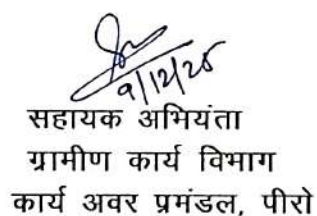 9/12/25
सहायक अभियंता
ग्रामीण कार्य विभाग
कार्य अवर प्रमंडल, पीरो